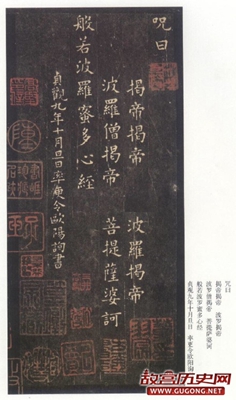 咒曰
揭帝揭帝 波羅揭帝
波羅僧揭帝 菩提薩婆訶
般若波羅蜜多心經
貞觀九年十月旦日率更令歐陽詢書
咒曰
揭帝揭帝 波罗揭帝
波罗僧揭帝 菩提萨婆诃
般若波罗蜜多心经
贞观九年十月旦日 率更令欧阳询
故宫历史网
www.gugong.net